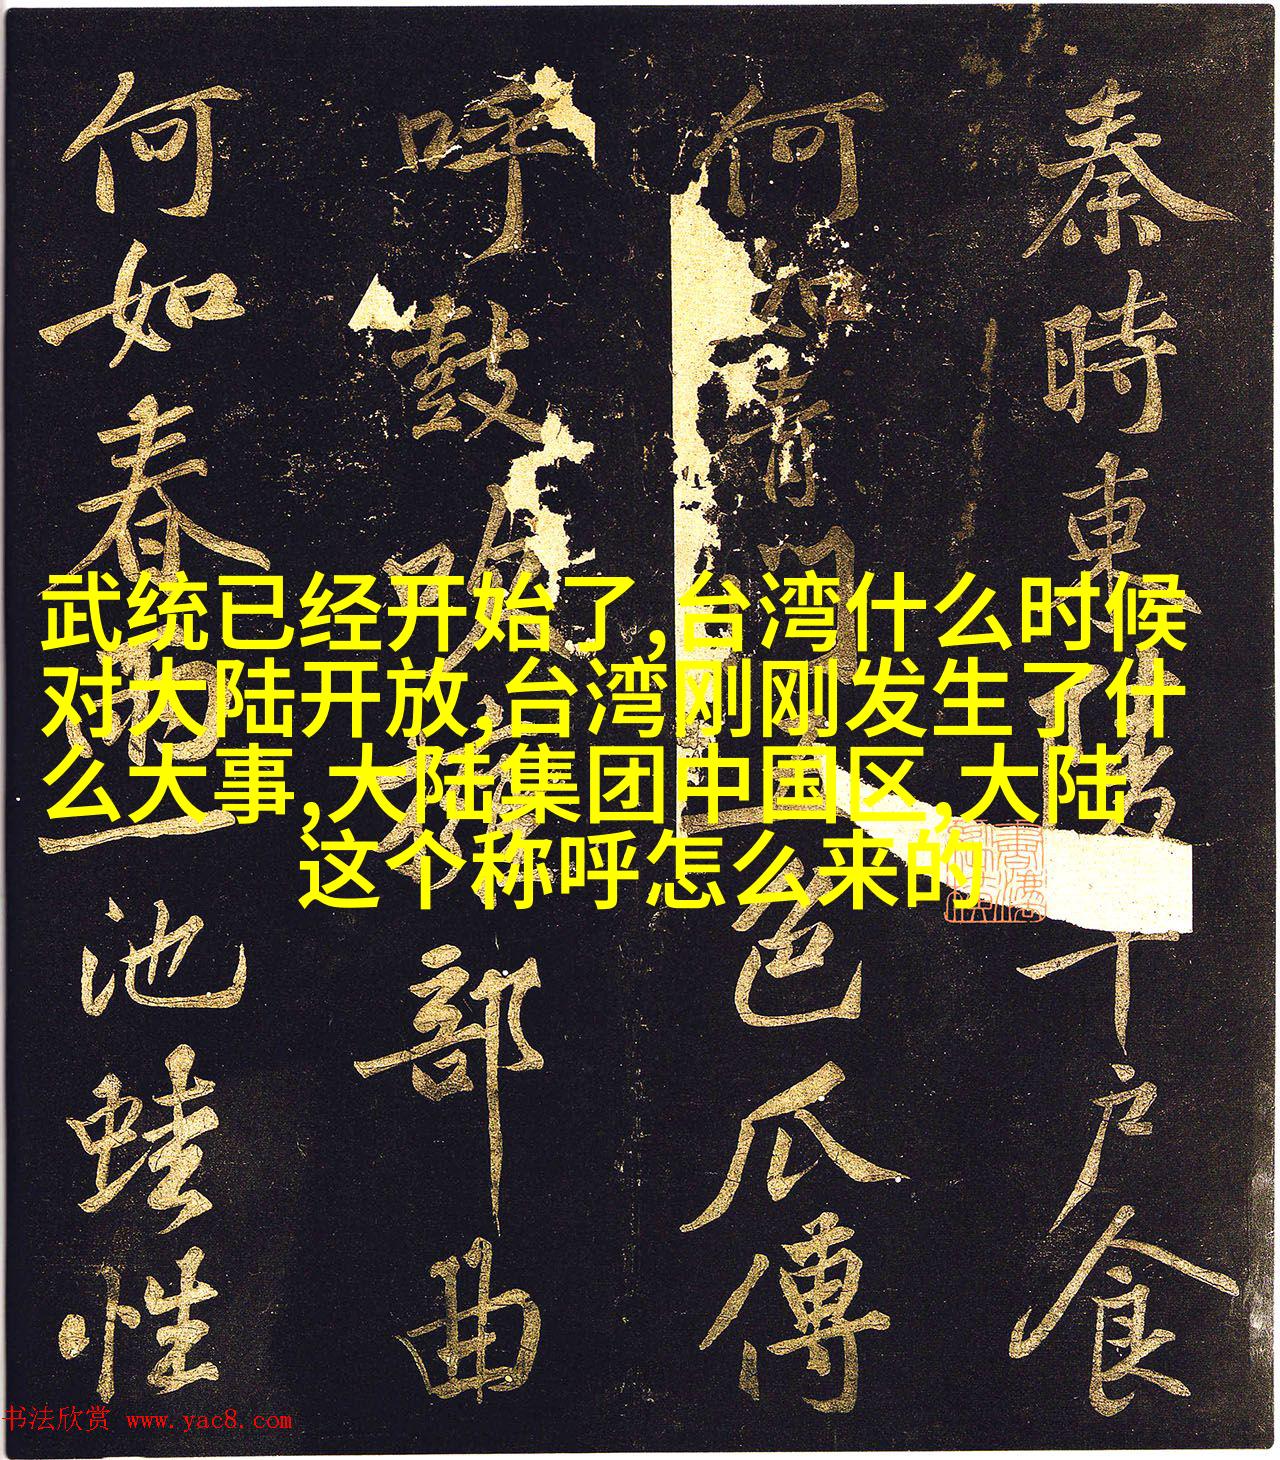 武统已经开始了,台湾什么时候
对大陆开放,台湾刚刚发生了什
么大事,大陆集团中国区,大陆
这个称呼怎么来的
秦時東陵千户食
何如青門五色瓜傅
呼鼓吹 部曲
何如春 一池蛙性
书法欣赏 www.yac8.com